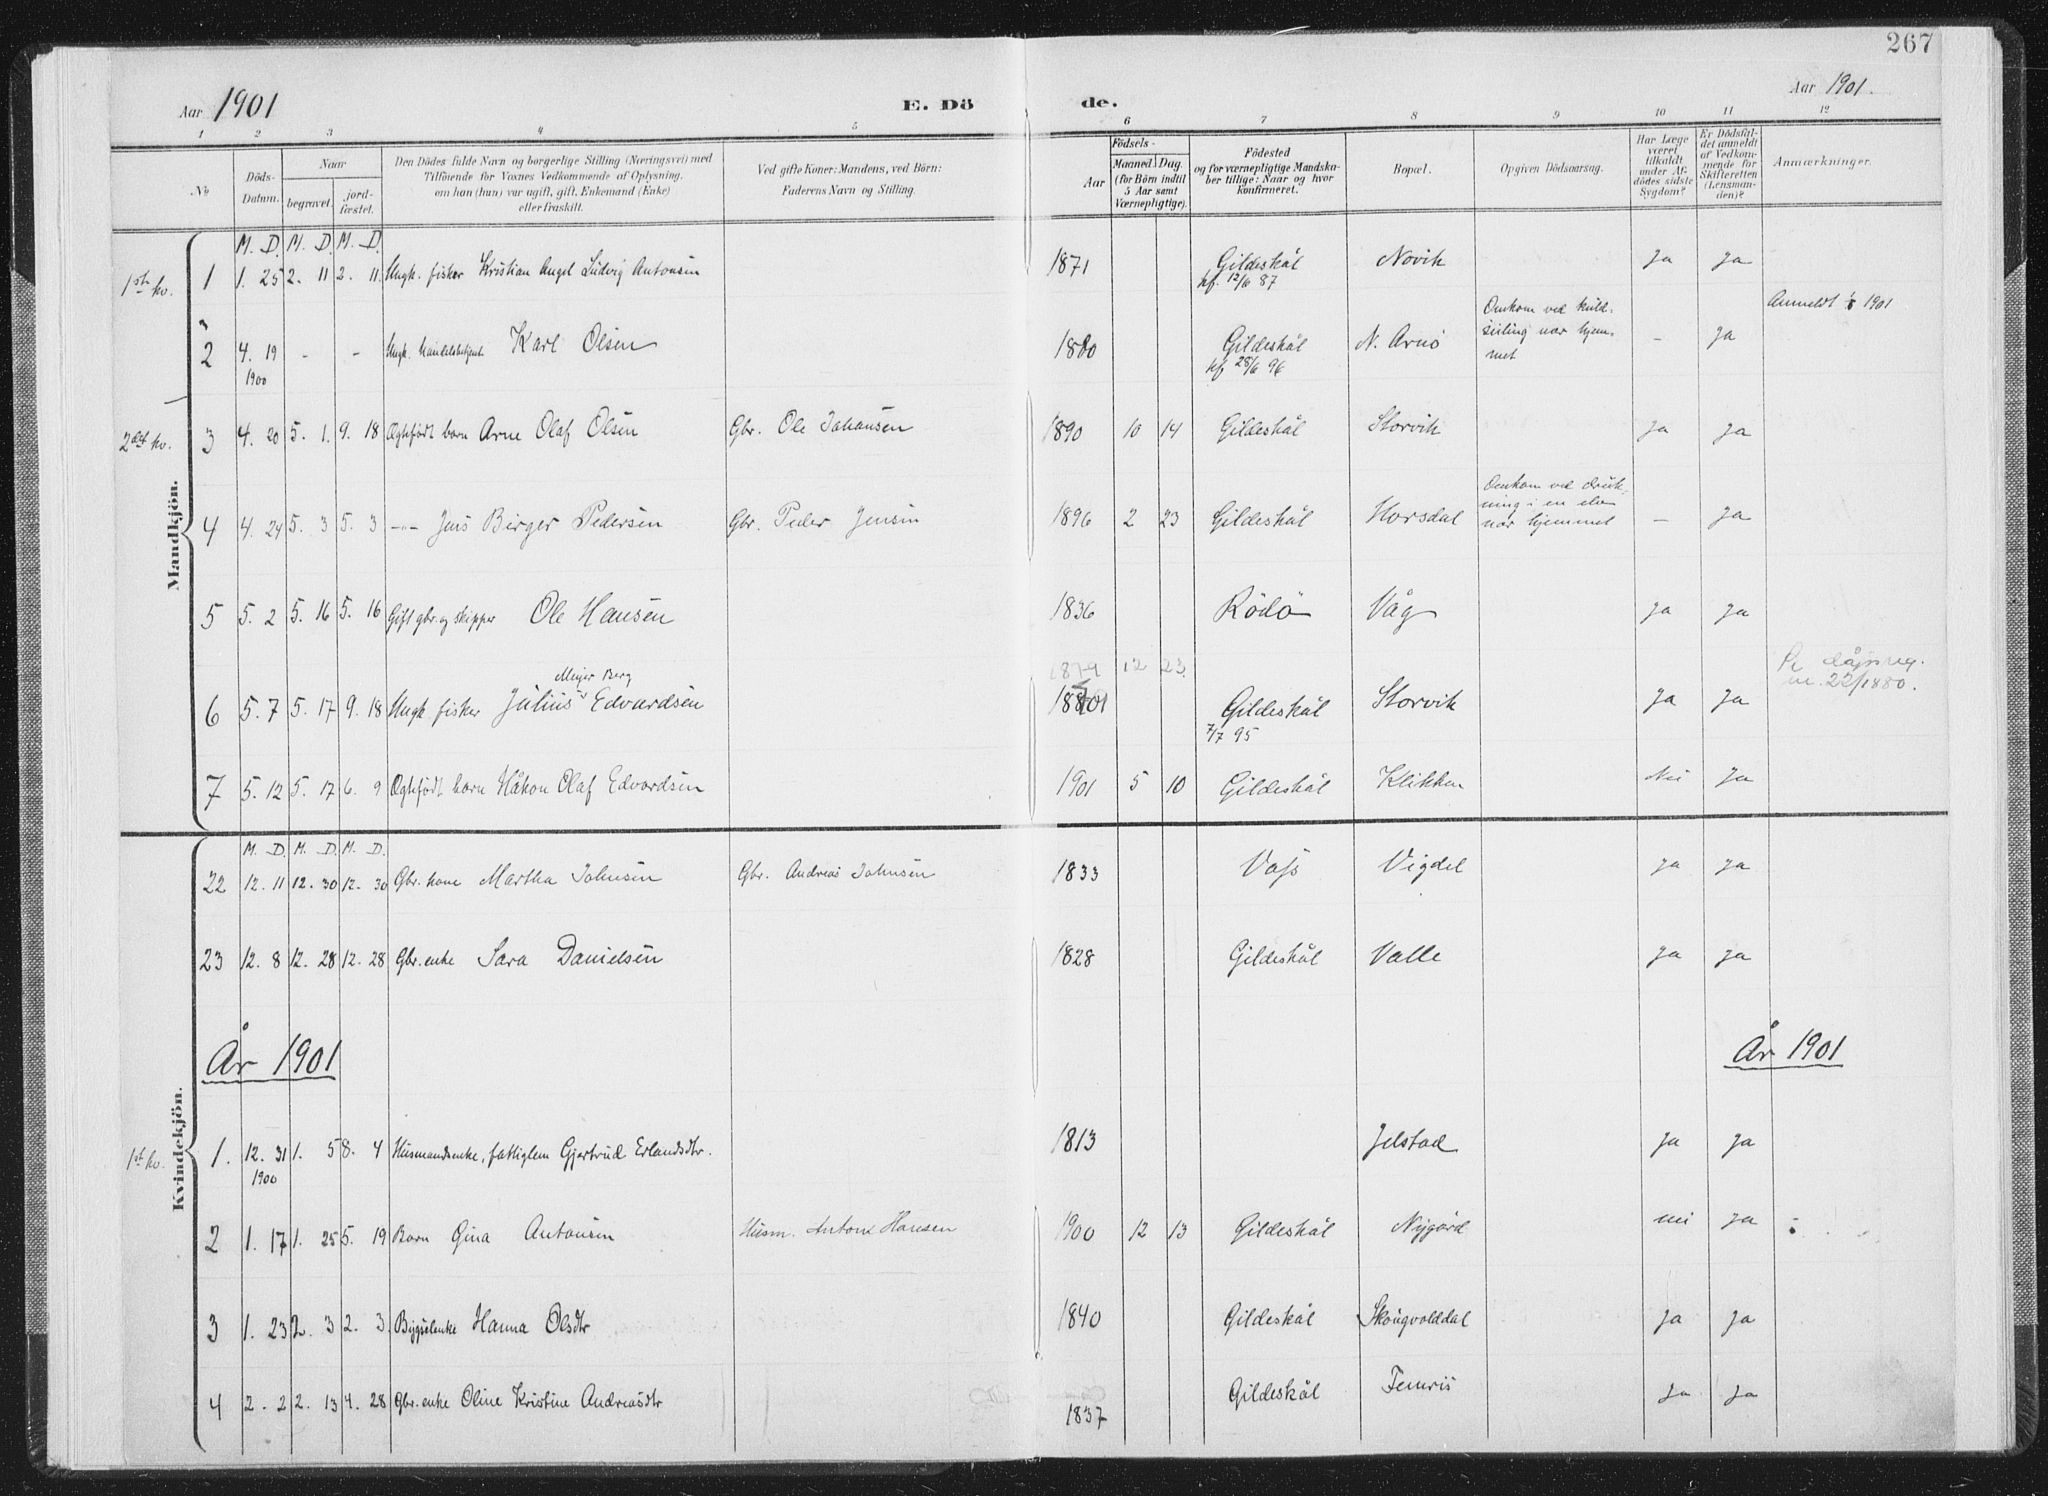 267
Aar 1901 E. Dö de. Aar 1901.
1 2 3 4 5 6 7 8 9 10 11 12
No
Döds-Datum.
Naar
begravet.
jordfæstet.
Den Dödes fulde Navn og borgerlige Stilling (Næringsvei) med
Tilföiende for Voxnes Vedkommende af Oplysning,
om han (hun) var ugift, gift, Enkemand (Enke)
eller fraskilt.
Ved gifte Koner: Mandens, ved Börn:
Faderens Navn og Stilling.
Födsels-
Aar
Maaned. Dag.
(for Börn indtil
5 Aar samt
Værnepligtige).
Födested
og for værnepligtige Mandska-
ber tillige: Naar og hvor
konfirmeret.
Bopæl.
Opgiven Dödsaarsag.
Har Læge
været
tilkaldt
under Af-
dödes sidste
Sygdom?
Er Dödsfal-
det anmeldt
af Vedkom-
mende for
Skifteretten
(Lensman-
den)?
Anmærkninger.
Mandkjön.
M. D. M. D. M. D.
1ste kv. 1 1. 25 2. 11 2. 11. Ungk. fisker Kristian Angel Ludvig Antonsen 1871 Gildeskål Novik Ja Ja
kf. 12/6 87
2 4. 19 - - Ungk. handelsbetjent Karl Olsen 1880 Gildeskål N. Arnö Omkom ved kuld- - Ja Anmeldt 1/8 1901
1900 kf 28/6 96 seiling nær hjem-
met
2det kv. 3 4. 20 5. 1. 9. 18 Ægtefödt barn Arne Olaf Olsen Gbr. Ole Johansen 1890 10 14 Gildeskål Storvik Ja Ja
4 4. 24 5. 3 5. 3 -"- Jens Birger Pedersen Gbr. Peder Jensen 1896 2 23 Gildeskål Horsdal Omkom ved druk- - Ja
ning i en elv
nær hjemmet
5 5. 2 5. 16 5. 16 Gift gbr. og skipper Ole Hansen 1836 Rödö Våg Ja Ja
Meyer Berg 1879 12 23 dåpsreg.
6 5. 7 5. 17 9. 18 Ungk fisker Julius Edvardsen Gildeskål Storvik Ja Ja nr. 22/1880.
7/7 95
7 5. 12 5. 17 6. 9 Ægtefödt barn Håkon Olaf Edvardsen 1901 5 10 Gildeskål Klikken Nei Ja
Kvindekjön.
M. D. M. D. M. D.
22 12. 11 12. 30 12. 30 Gbr. kone Martha Johnsen Gbr. Andreas Johnsen 1833 Vigdel Ja Ja
23 12. 8 12. 28 12. 28 Gbr. enke Sara Danielsen 1828 Gildeskål Valle Ja Ja
År 1901 År 1901
1ste kv. 1. 12. 31 1. 5 8. 4 Husmandsenke, fattiglem Gjertrud Erlandsdtr. 1813 Jelstad Ja Ja
1900
2 1. 17 1. 25 5. 19 Barn Gina Antonsen Husm. Anton Hansen 1900 12 13 Gildeskål Nygård nei Ja
3 1. 23 2. 3 2. 3. Bygselenke Hanna Olsdtr 1840 Gildeskål Skougvolddal Ja Ja
4 2. 2 2. 13 4. 28 Gbr. enke Oline Kristine Andreasdtr 1837 Gildeskål Femris Ja Ja